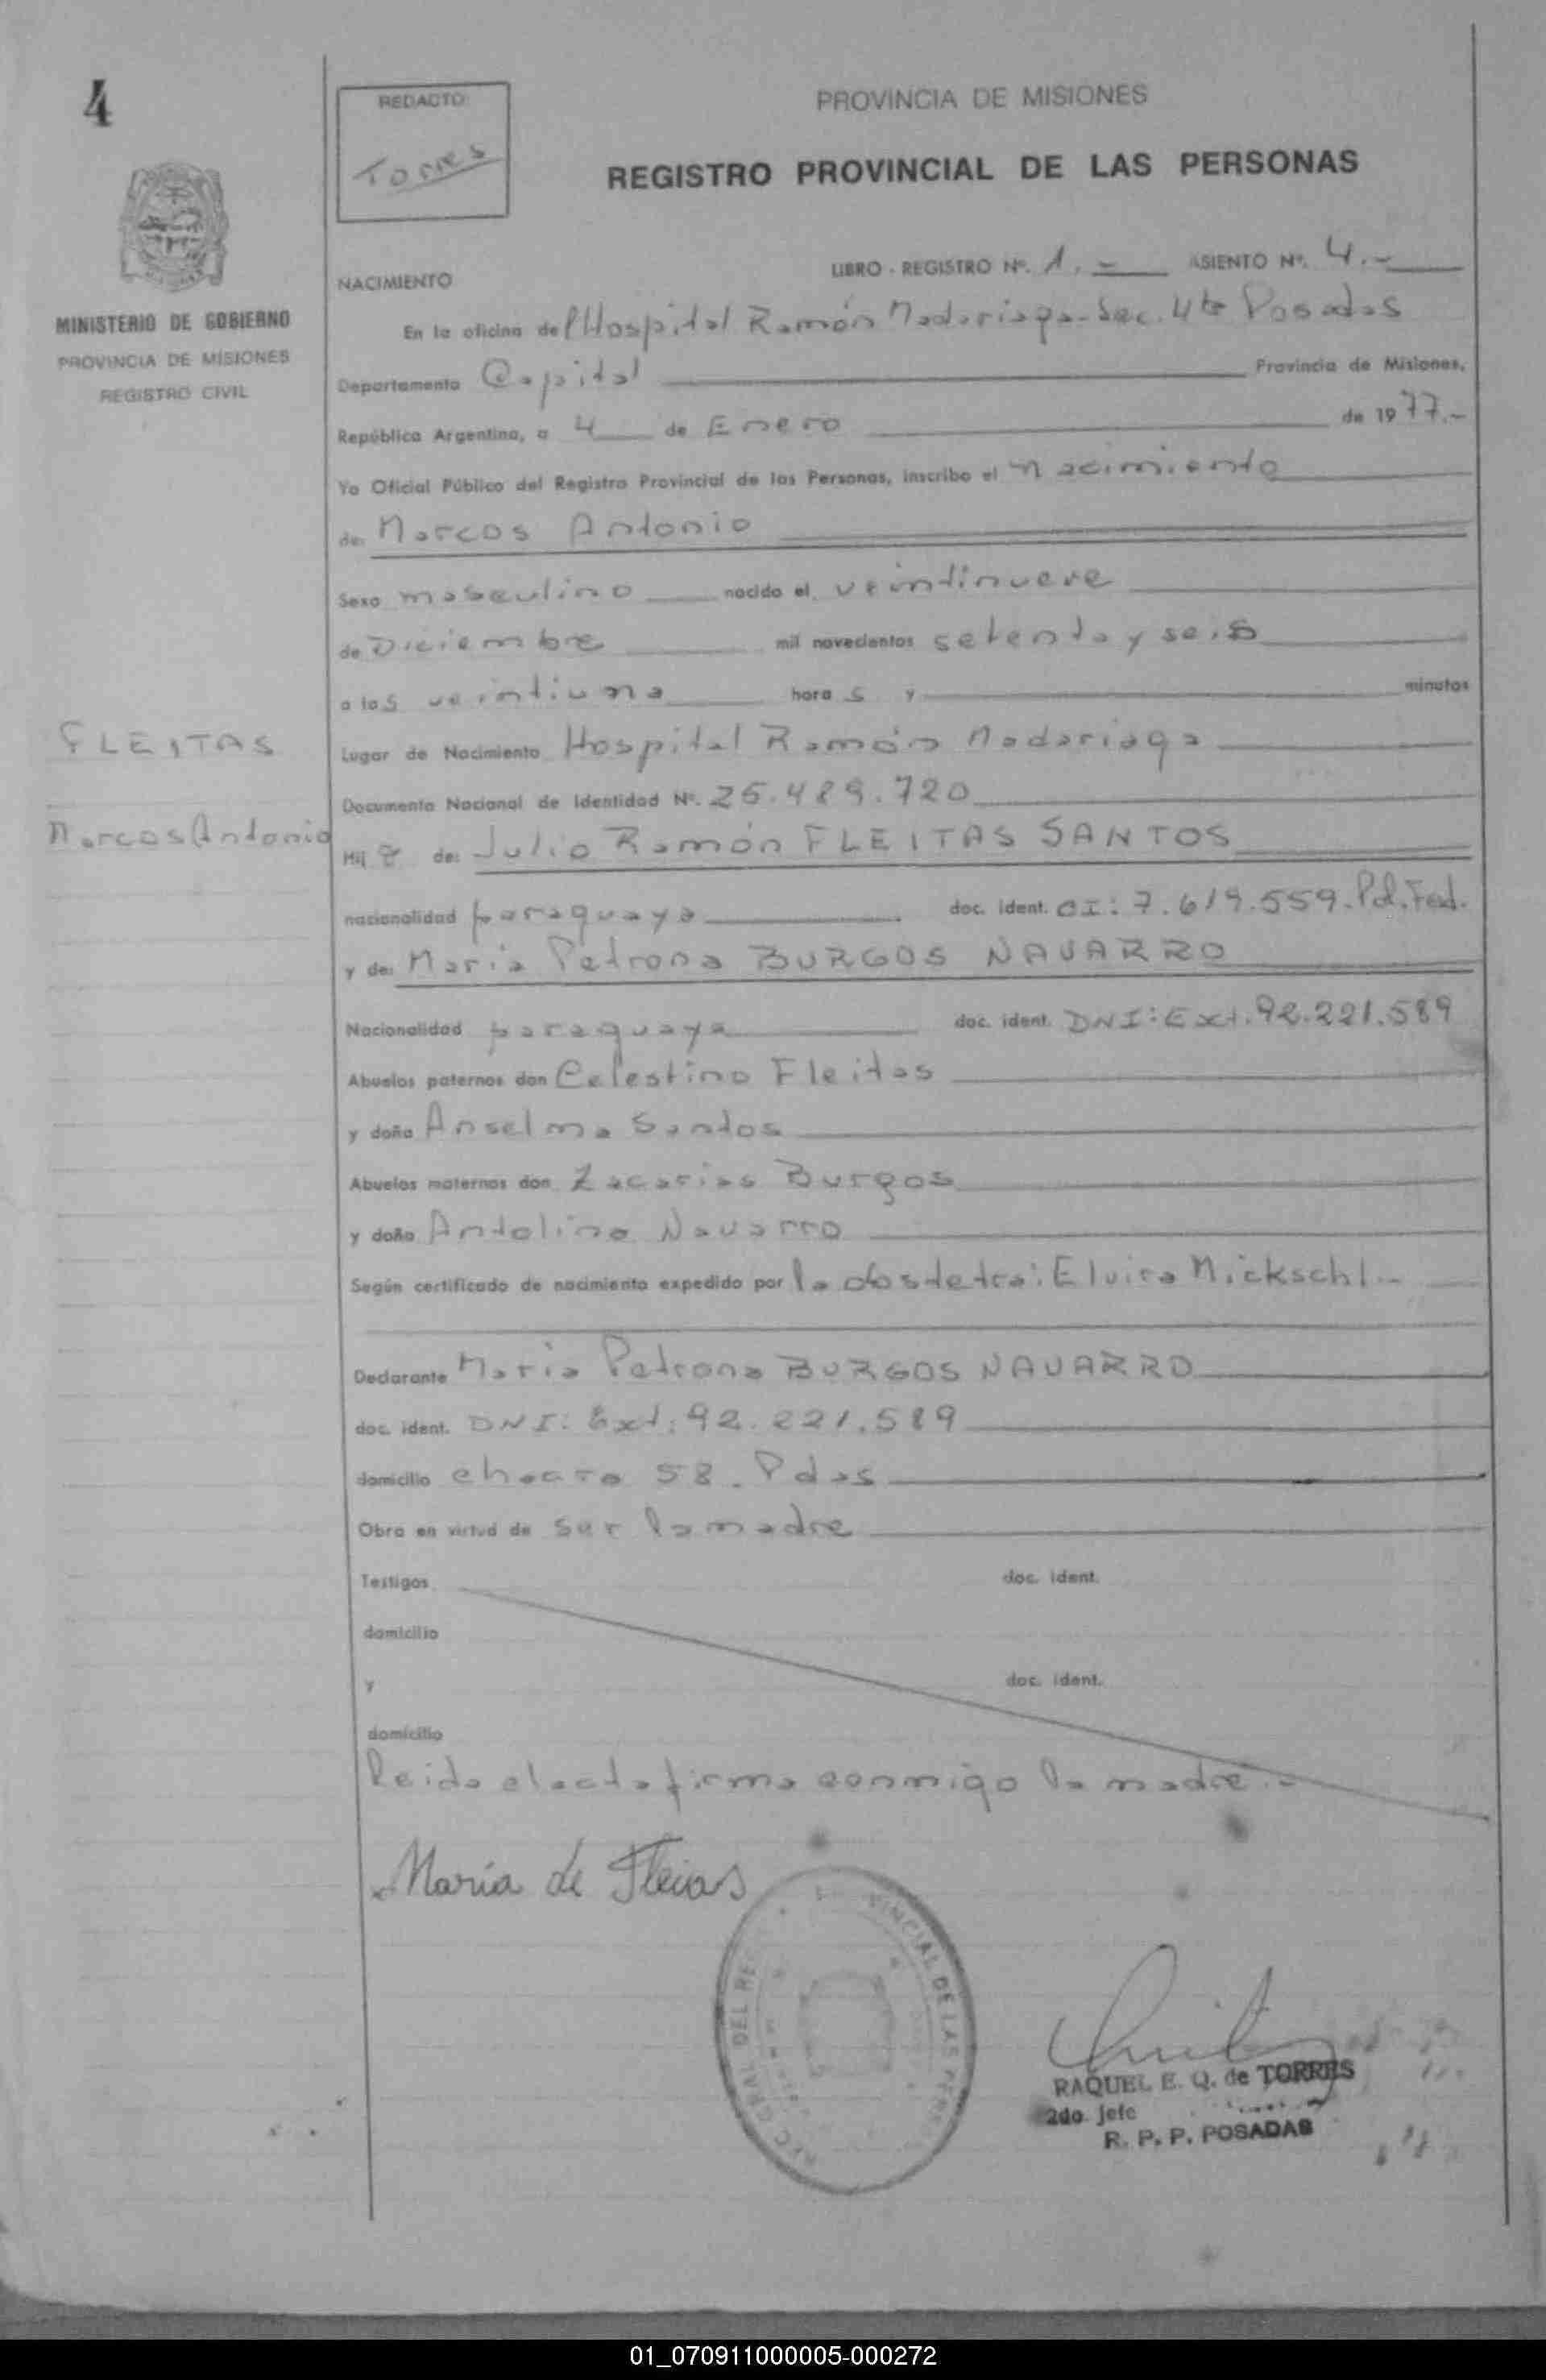 4
REDACTO
Torres
PROVINCIA DE MISIONES
REGISTRO PROVINCIAL DE LAS PERSONAS
MINISTERIO DE GOBIERNO
PROVINCIA DE MISIONES
REGISTRO CIVIL
LIBRO - REGISTRO Nº. 1.- ASIENTO Nº. 4.-
NACIMIENTO
En la oficina del Hospital Ramón Madariaga-Sec. 4ta Posadas
Departamento Capital Provincia de Misiones,
República Argentina, a 4 de Enero de 1977.-
Yo Oficial Público del Registro Provincial de las Personas, inscribo el nacimiento
de: Marcos Antonio
Sexo masculino nacido el veintinueve
de Diciembre mil novecientos setenta y seis
a las veintiuna horas y minutos
FLEITAS
Lugar de Nacimiento Hospital Ramón Madariaga
Documento Nacional de Identidad Nº. 25.489.720
Marcos Antonio
Hijo de: Julio Ramón FLEITAS SANTOS
nacionalidad paraguaya doc. ident. CI: 7.619.559.Pol.Fed.
y de: Maria Petrona BURGOS NAVARRO
Nacionalidad paraguaya doc. ident. DNI: Ext. 92.221.589
Abuelos paternos don Celestino Fleitas
y doña Anselma Santos
Abuelos maternos don Zacarias Burgos
y doña Antolina Navarro
Según certificado de nacimiento expedido por la obstetra: Elvira Mickschl.-
Declarante Maria Petrona BURGOS NAVARRO
doc. ident. DNI: Ext: 92.221.589
domicilio chacra 58. Pdas
Obra en virtud de ser la madre
Testigos doc. ident.
domicilio
y doc. ident.
domicilio
Leida el acta firma conmigo la madre.-
María de Fleias
VINCIAL DE LAS PERS
GRAL DEL RE
RAQUEL E. Q. de TORRES
2do. Jefe
R. P. P. POSADAS
01_070911000005-000272